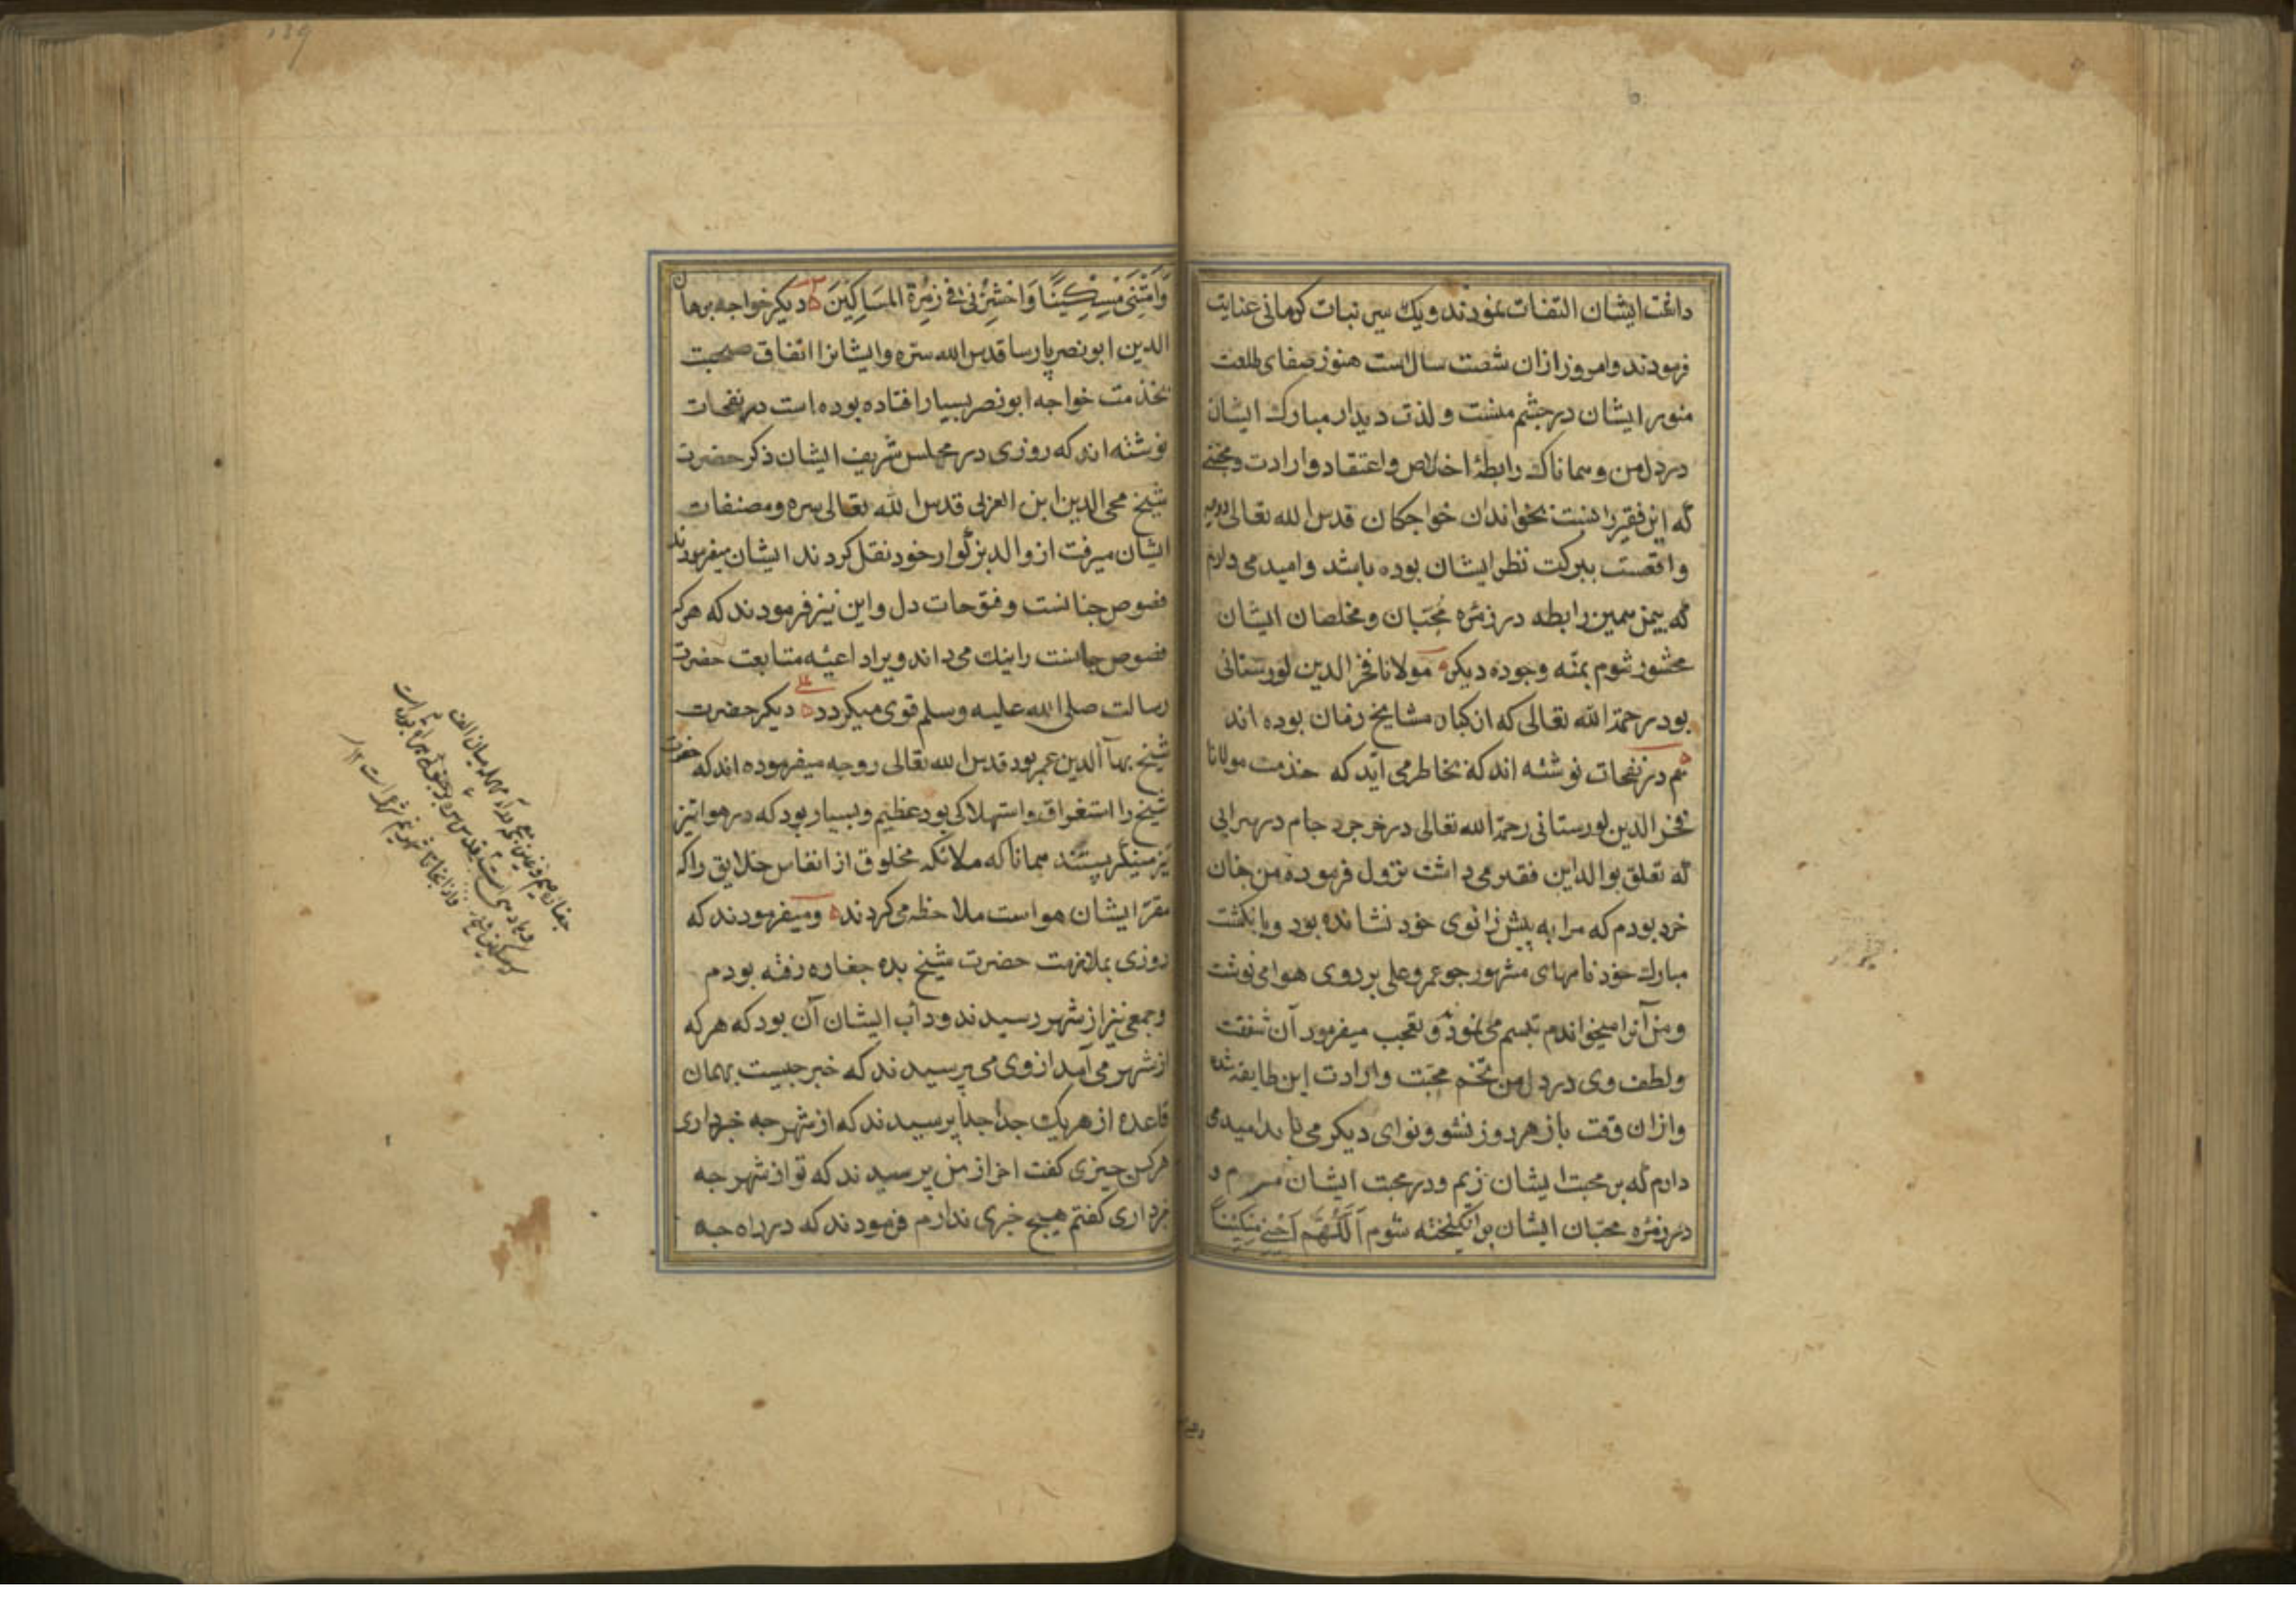 داشت ایشان التفات نمودند و یک سیر نبات کرمانی عنایت
فرمودند و امروز ازان شصت سال است هنوز صفای طلعت
منور ایشان در چشم منست و لذت دیدار مبارک ایشان
در دل من و همانا که رابطهٔ اخلاص و اعتقاد و ارادت و محبتی
که این فقیر را نسبت بخواندان خواجکان قدس الله تعالی
واقعست ببرکت نظر ایشان بوده باشد و امید می دارم
که بیمن همین رابطه در زمره محبان و مخلصان ایشان
محشور شوم بمنه وجوده دیکر مولانا فخر الدین لورستانی
بود رحمة الله تعالی که از کبار مشایخ زمان بوده اند
هم در نفحات نوشته اند که بخاطر می آید که خدمت مولانا
فخر الدین لورستانی رحمة الله تعالی در خرجرد جام در سرایی
که تعلق بوالد این فقیر می داشت نزول فرموده من چنان
خرد بودم که مرا به پیش زانوی خود نشانده بود و بانکشت
مبارک خود نامهای مشهور چو عمر و علی بر روی هوا می نوشت
و من آنرا میخواندم تبسم می نمود و تعجب میفرمود آن شفقت
و لطف وی در دل من تخم محبت و ارادت این طایفه شد
و ازان وقت باز هر روز نشو و نوای دیکر می یابد امید می
دارم که بر محبت ایشان زیم و در محبت ایشان میرم و
در زمره محبان ایشان برانکیخته شوم اَللّٰهُمَّ اَحْیِنِی مِسْکِیْنًا
وَاَمِتْنِی مِسْکِیْنًا وَاحْشُرْنِی فِی زُمْرَةِ المَسَاکِیْنَ دیکر خواجه برهان
الدین ابو نصر پارسا قدس الله سره و ایشانرا اتفاق صحبت
بخدمت خواجه ابو نصر بسیار افتاده بوده است در نفحات
نوشته اند که روزی در مجلس شریف ایشان ذکر حضرت
شیخ محی الدین ابن العربی قدس الله تعالی سره و مصنفات
ایشان میرفت از والد بزکوار خود نقل کردند ایشان میفرمودند
فصوص جانست و فتوحات دل و این نیز فرمودند که هر که
فصوص جانست را نیک می داند ویرا داعیهٔ متابعت حضرت
رسالت صلی الله علیه وسلم قوی میکردد دیکر حضرت
شیخ بهآ الدین عمر بود قدس الله تعالی روحه میفرموده اند که حضرت
شیخ را استغراق و استهلاکی بود عظیم و بسیار بود که در هوا تیز
تیز مینکریستند همانا که ملائکه مخلوق از انفاس خلایق را که
مقر ایشان هواست ملاحظه می کردند و میفرمودند که
روزی بملازمت حضرت شیخ بده جغاره رفته بودم
و جمعی نیز از شهر رسیدند و دأب ایشان آن بود که هر که
از شهر می آمد از وی می پرسیدند که خبر چیست بهمان
قاعده از هر یک جدا جدا پرسیدند که از شهر چه خبر داری
هر کس چیزی کفت اخر از من پرسیدند که تو از شهر چه
خبر داری کفتم هیچ خبری ندارم فرمودند که در راه چه